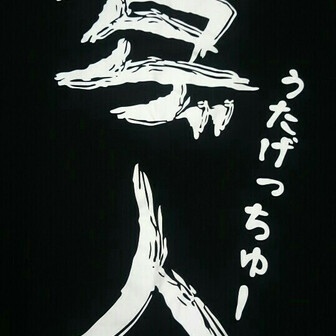 うたげっちゅー
人